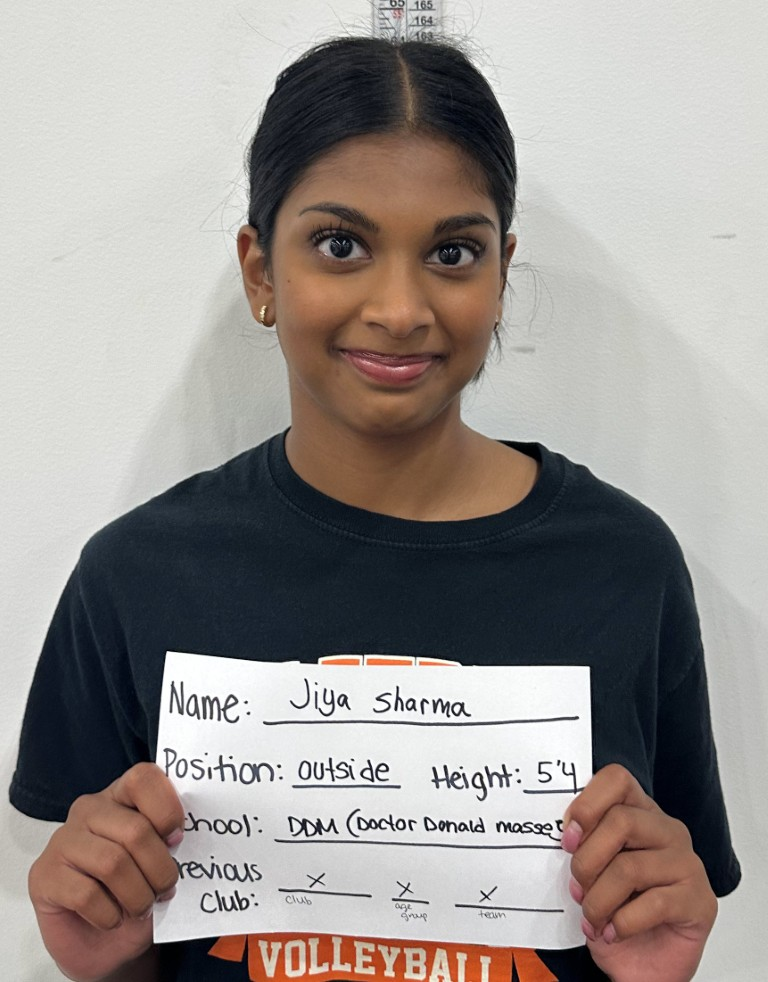 65 165
164
163
Name: Jiya Sharma
Position: outside Height: 5'4
chool: DDM (Doctor Donald masse
revious
Club: X X X
club age group team
VOLLEYBALL